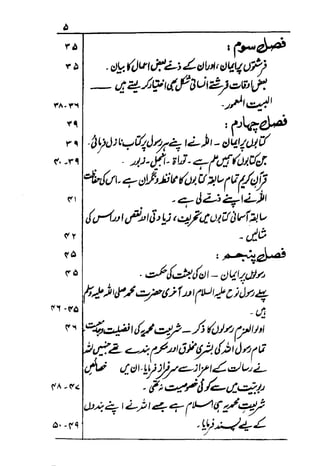 ۵
فصل سوم: ۳۵
فرشتوں پر ایمان، اور ان کے ذمے بعض اعمال کا بیان۔ ۳۵
بعض اوقات فرشتے انسانی شکل بھی اختیار کرتے ہیں
البیت المعمور۔ ۳۶-۳۸
فصل چہارم: ۳۹
کتابوں پر ایمان ۔ اللہ نے اپنے ہر رسول پر کتاب نازل فرمائی۔ ۳۹
جن کتابوں کا ہمیں علم ہے۔ توراة ۔ انجیل ۔ زبور ۔ ۳۹-۴۰
قرآن کریم تمام سابقہ کتابوں کا محافظ و نگران ہے۔ اس کی حفاظت
اللہ نے اپنے ذمے لی ہے۔ ۴۱
سابقہ آسمانی کتابوں میں تحریف، زیادتی اور نقص اور اس کی
مثالیں ۔ ۴۲
فصل پنجم: ۴۵
رسولوں پر ایمان ۔ ان کی بعثت کی حکمت ۔ ۴۵
پہلے رسول نوح علیہ السلام اور آخری حضرت محمد صلی اللہ علیہ وسلم
ہیں ۔ ۴۵-۴۶
اولوالعزم رسولوں کا ذکر ۔ شریعت محمدیہ کی افضلیت و جامعیت ۴۶
تمام رسول اللہ کی بشری مخلوق اور محکوم بندے تھے جنہیں اللہ
نے رسالت کے اعزاز سے سرفراز فرمایا۔ ان میں خصائص
ربوبیت میں سے کوئی خصوصیت نہ تھی۔ ۴۷-۴۸
شریعت محمدیہ ہی اسلام ہے جسے اللہ نے اپنے بندوں
کے لیے پسند فرمایا۔ ۴۹-۵۰